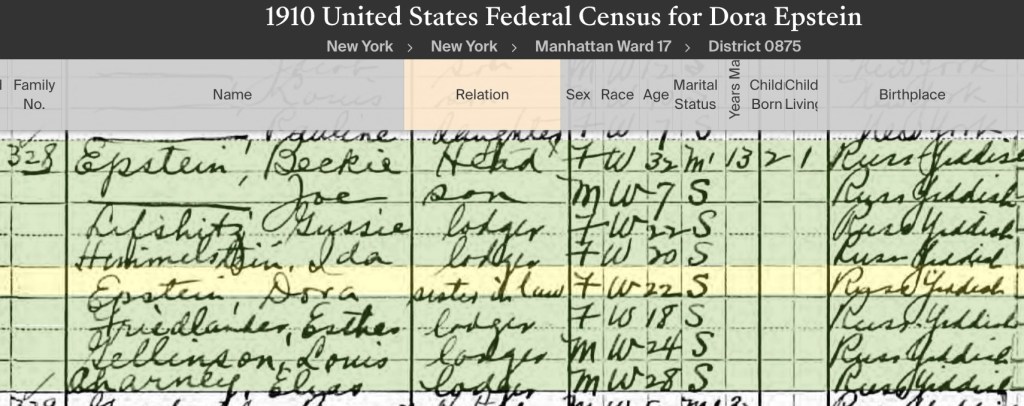 1910 United States Federal Census for Dora Epstein
New York > New York > Manhattan Ward 17 > District 0875
Family No. Name Relation Sex Race Age Marital Status Years Ma Child Born Child Living Birthplace
Pauline daughter F W 7 S New York
328 Epstein, Beckie Head F W 32 M1 13 2 1 Russ Yiddish
Joe son M W 7 S Russ Yiddish
Lifshitz Gussie lodger F W 22 S Russ Yiddish
Himmelstein, Ida lodger F W 20 S Russ Yiddish
Epstein, Dora sister in law F W 22 S Russ Yiddish
Friedlander, Esther lodger F W 18 S Russ Yiddish
Gellinson, Louis lodger M W 24 S Russ Yiddish
Charney, Elias lodger M W 28 S Russ Yiddish
329